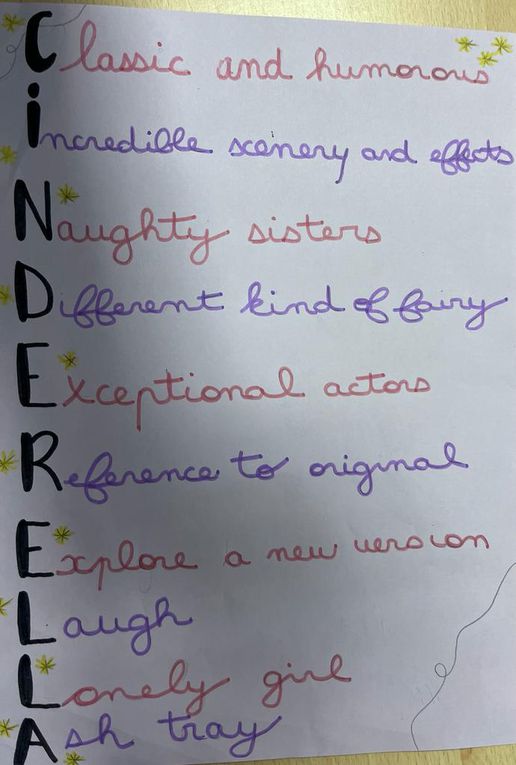 Classic and humorous
incredible scenery and effects
Naughty sisters
Different kind of fairy
Exceptional actors
Reference to original
Explore a new version
Laugh
Lonely girl
Ash tray